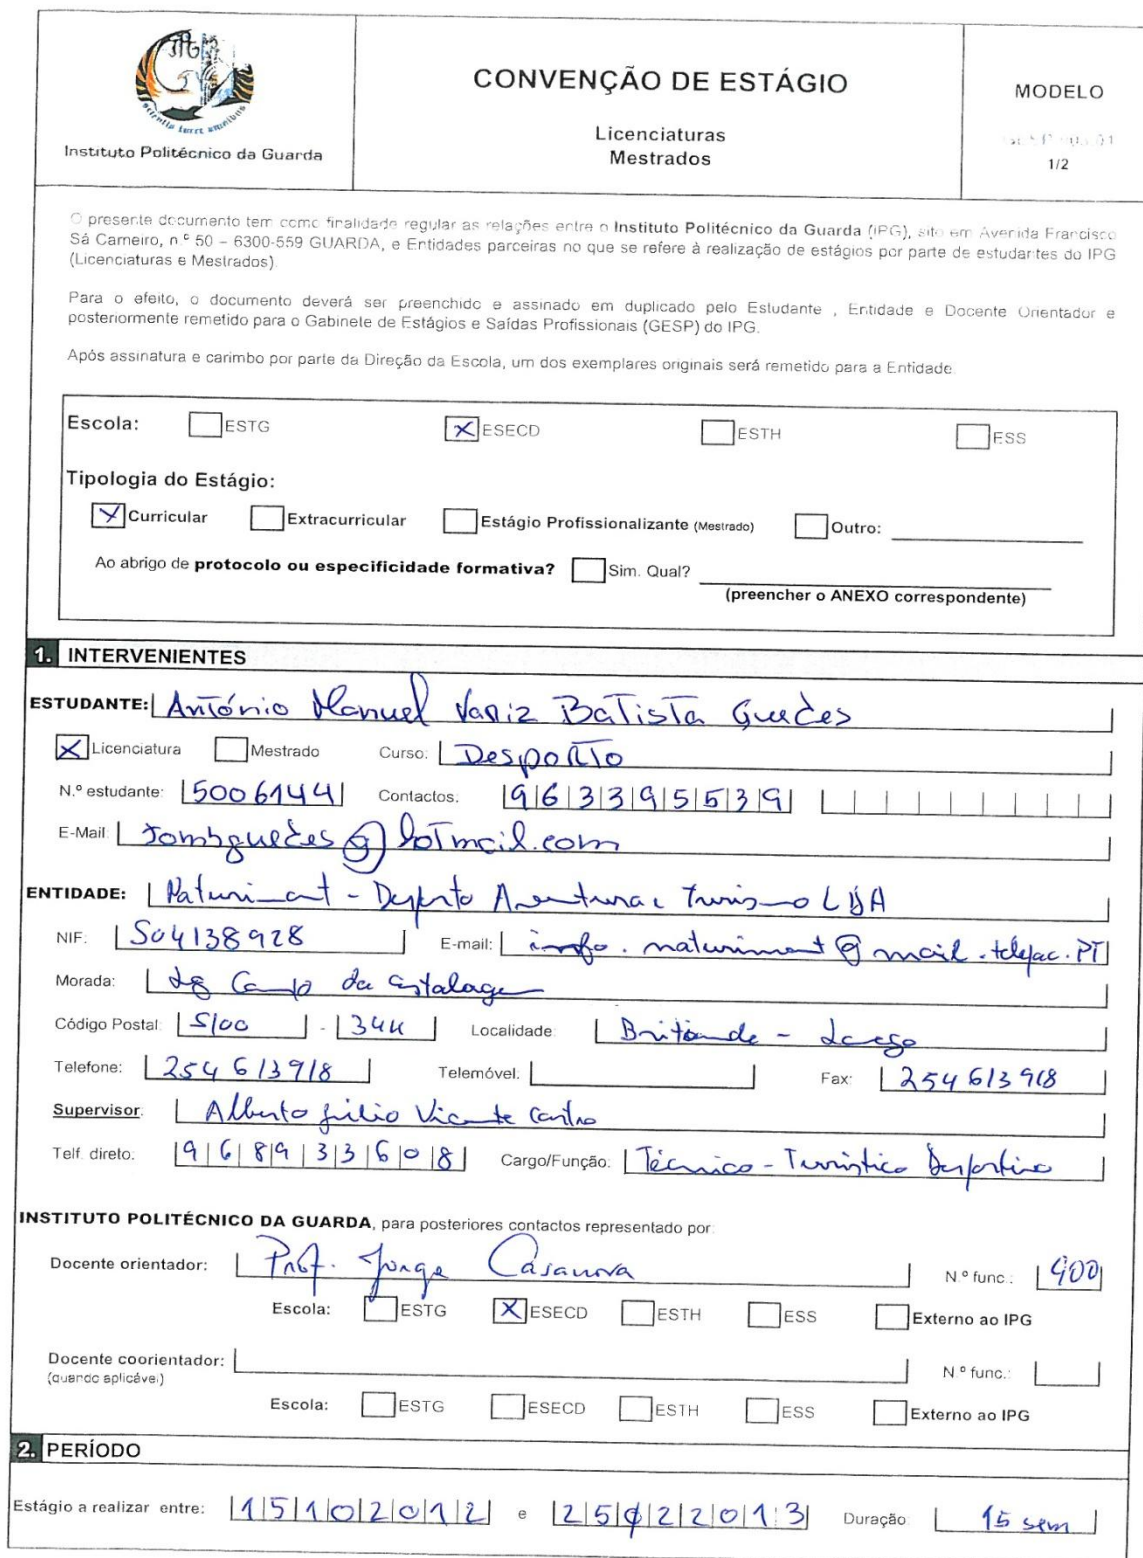 Instituto Politécnico da Guarda
CONVENÇÃO DE ESTÁGIO
Licenciaturas
Mestrados
MODELO
1/2
O presente documento tem como finalidade regular as relações entre o Instituto Politécnico da Guarda (IPG), sito em Avenida Francisco
Sá Carneiro, n.º 50 – 6300-559 GUARDA, e Entidades parceiras no que se refere à realização de estágios por parte de estudantes do IPG
(Licenciaturas e Mestrados)
Para o efeito, o documento deverá ser preenchido e assinado em duplicado pelo Estudante , Entidade e Docente Orientador e
posteriormente remetido para o Gabinete de Estágios e Saídas Profissionais (GESP) do IPG.
Após assinatura e carimbo por parte da Direção da Escola, um dos exemplares originais será remetido para a Entidade.
Escola: ESTG X ESECD ESTH ESS
Tipologia do Estágio:
X Curricular Extracurricular Estágio Profissionalizante (Mestrado) Outro:
Ao abrigo de protocolo ou especificidade formativa? Sim. Qual?
(preencher o ANEXO correspondente)
1. INTERVENIENTES
ESTUDANTE: António Manuel Variz Batista Guedes
X Licenciatura Mestrado Curso: Desporto
N.º estudante: 5006144 Contactos: 963395539
E-Mail: tombguedes@hotmail.com
ENTIDADE: Naturimont - Desporto Aventura e Turismo LDA
NIF: 504138928 E-mail: info.naturimont@mail.telepac.PT
Morada: Lg Campo da Estalagem
Código Postal: 5100 - 344 Localidade: Britiande - Lamego
Telefone: 254613918 Telemóvel: Fax: 254613918
Supervisor: Alberto Júlio Vicente Castro
Telf. direto: 968933608 Cargo/Função: Técnico - Turístico Desportivo
INSTITUTO POLITÉCNICO DA GUARDA, para posteriores contactos representado por:
Docente orientador: Prof. Jorge Casanova N.º func.: 400
Escola: ESTG X ESECD ESTH ESS Externo ao IPG
Docente coorientador: N.º func.:
(quando aplicável)
Escola: ESTG ESECD ESTH ESS Externo ao IPG
2. PERÍODO
Estágio a realizar entre: 15102012 e 25022013 Duração 15 sem